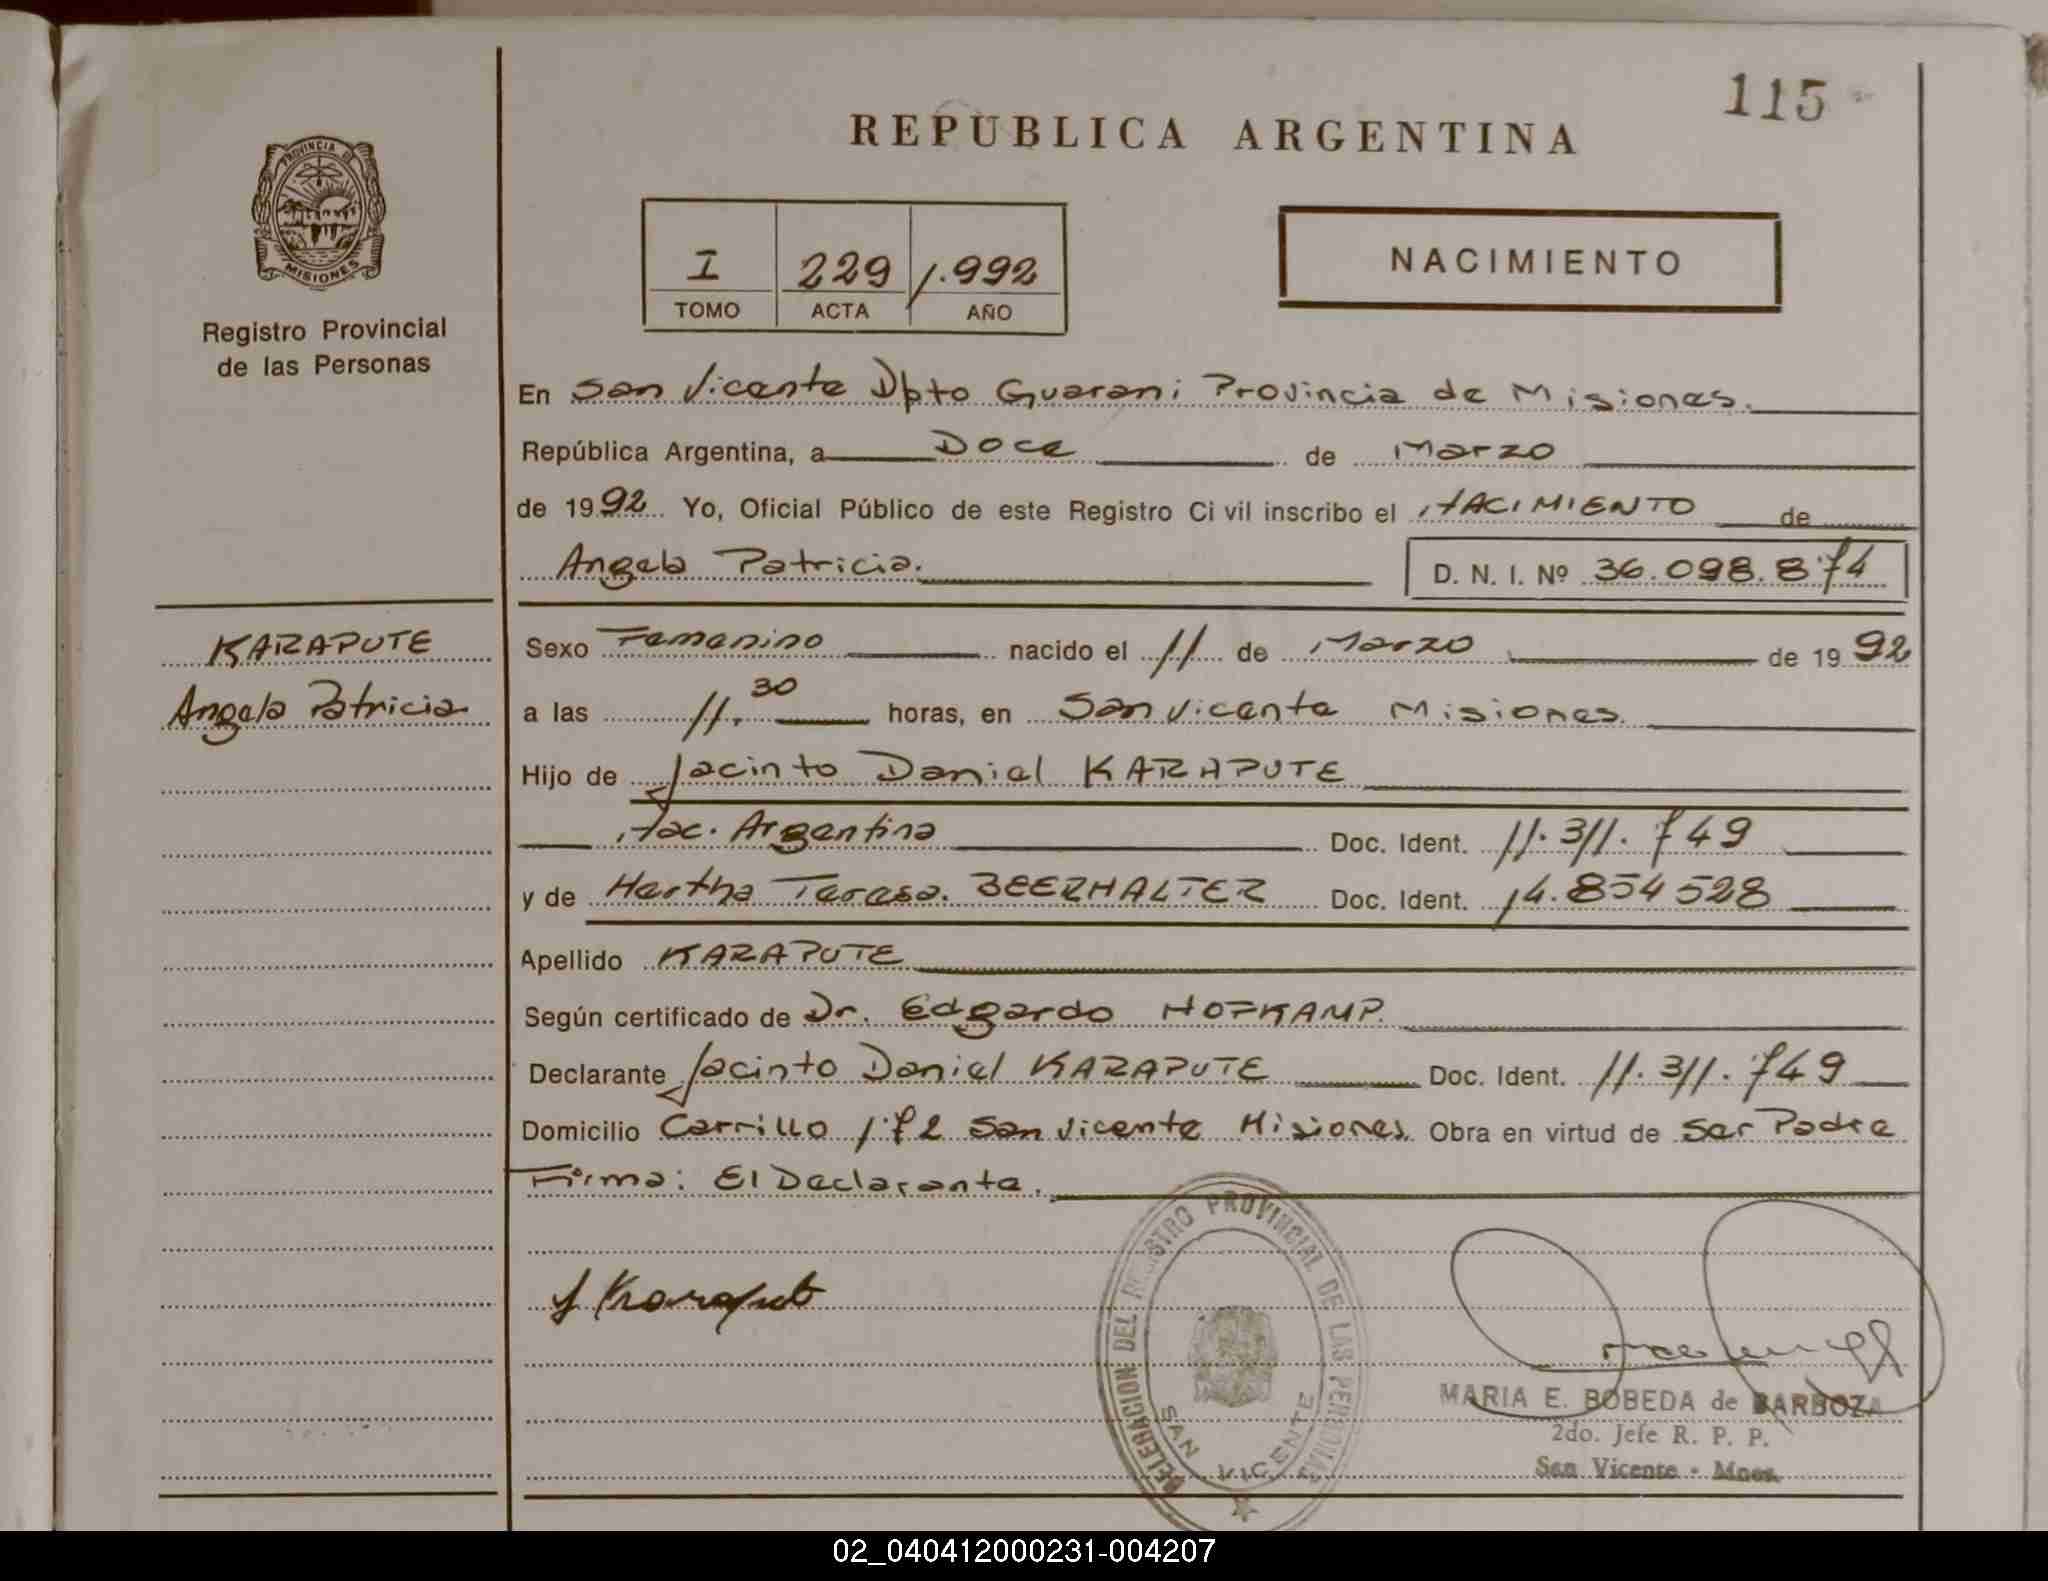 115
REPUBLICA ARGENTINA
PROVINCIA DE
MISIONES
Registro Provincial
de las Personas
I 229 1.992
TOMO ACTA AÑO
NACIMIENTO
En San Vicente Dpto Guarani Provincia de Misiones.
República Argentina, a Doce de Marzo
de 1992 Yo, Oficial Público de este Registro Civil inscribo el NACIMIENTO de
Angela Patricia. D. N. I. Nº 36.098.874
KARAPUTE
Angela Patricia
Sexo Femenino nacido el 11 de Marzo de 1992
a las 11.30 horas, en San Vicente Misiones.
Hijo de Jacinto Daniel KARAPUTE
Nac. Argentina Doc. Ident. 11.311.749
y de Hertha Teresa. BEERHALTER Doc. Ident. 14.854528
Apellido KARAPUTE
Según certificado de Dr. Edgardo HOFKAMP.
Declarante Jacinto Daniel KARAPUTE Doc. Ident. 11.311.749
Domicilio Carrillo 172 San Vicente Misiones. Obra en virtud de Ser Padre
Firma: El Declarante.
J Karaput
DELEGACION DEL REGISTRO PROVINCIAL DE LAS PERSONAS
SAN VICENTE
MARIA E. BOBEDA de BARBOZA
2do. Jefe R. P. P.
San Vicente - Mnes.
02_040412000231-004207